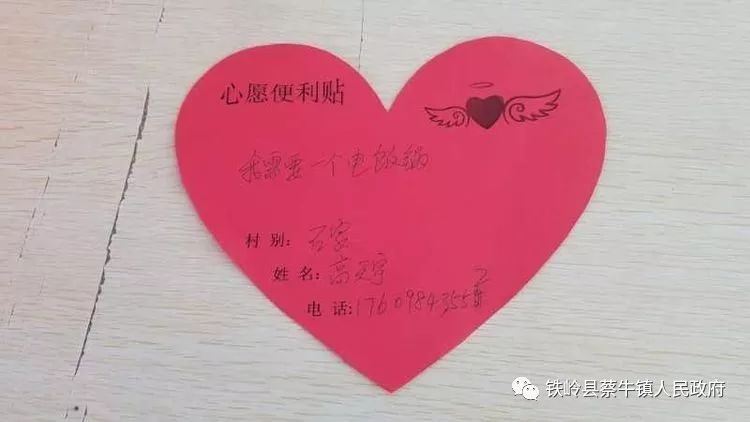 心愿便利贴
我需要一个电饭锅
村 别: 石家
姓 名: 高
电 话: 1760984355
铁岭县蔡牛镇人民政府